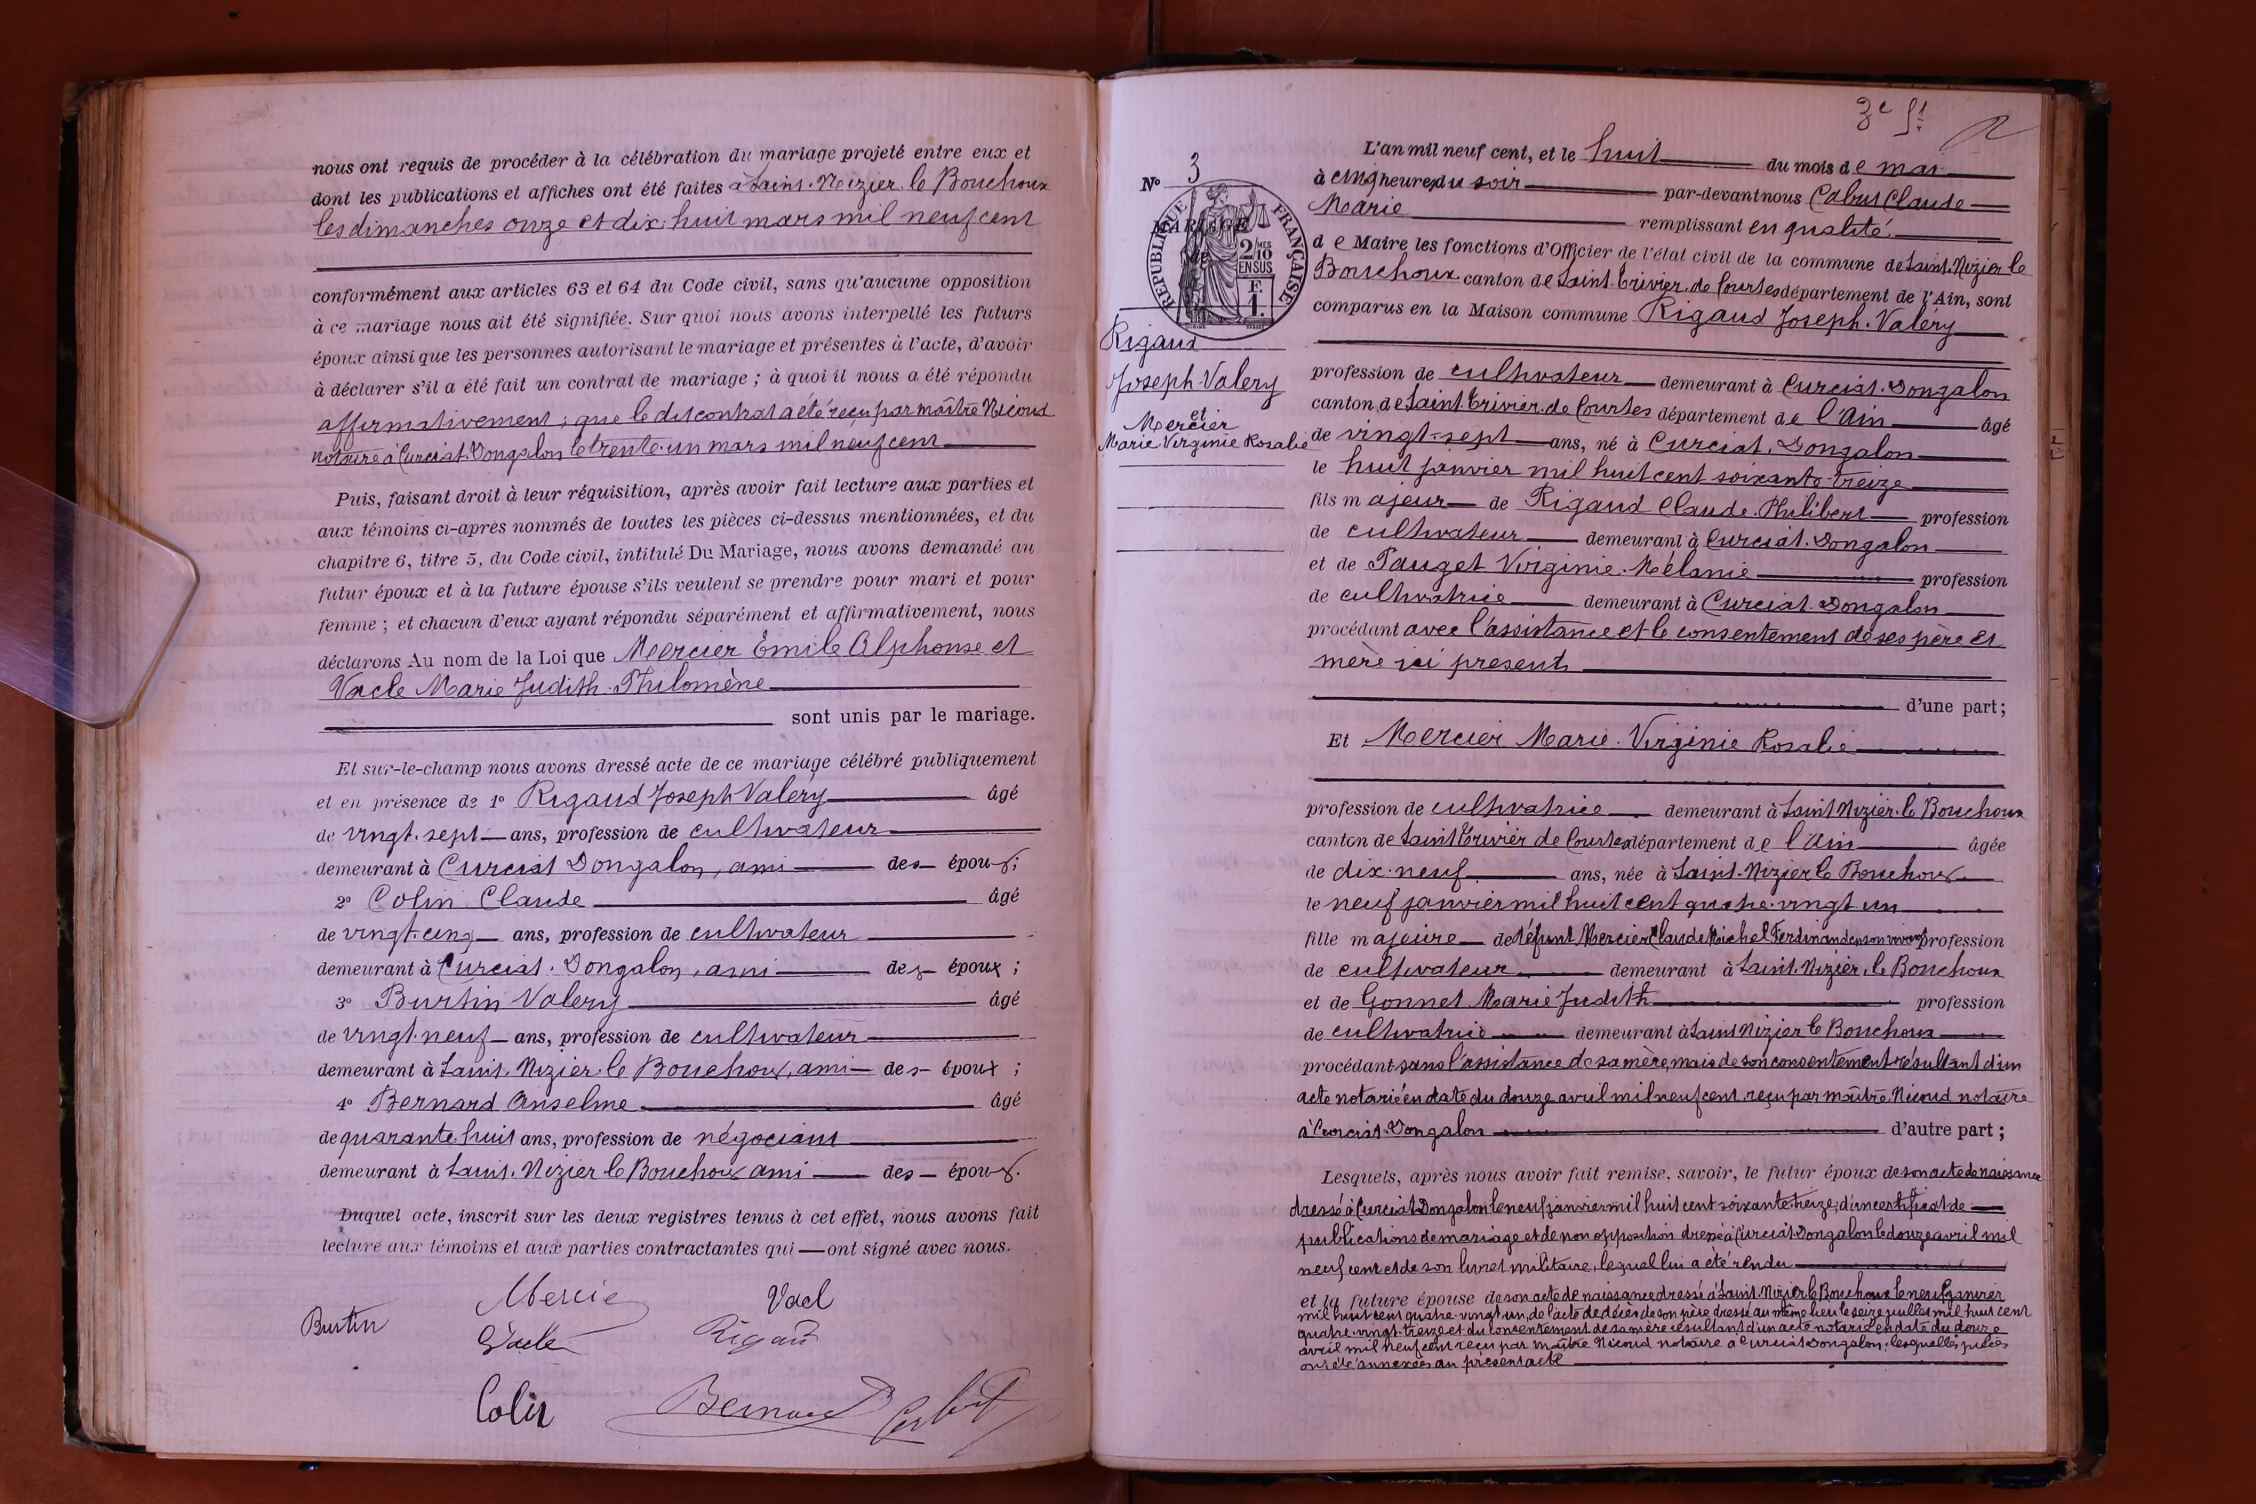 nous ont requis de procéder à la célébration du mariage projeté entre eux et
dont les publications et affiches ont été faites à Saint-Nizier-le Bouchoux
les dimanches onze et dix-huit mars mil neuf cent
conformément aux articles 63 et 64 du Code civil, sans qu'aucune opposition
à ce mariage nous ait été signifiée. Sur quoi nous avons interpellé les futurs
époux ainsi que les personnes autorisant le mariage et présentes à l'acte, d'avoir
à déclarer s'il a été fait un contrat de mariage ; à quoi il nous a été répondu
affirmativement, que le dit contrat a été reçu par maître Nicoud
notaire à Curciat-Dongalon le trente-un mars mil neuf cent
Puis, faisant droit à leur réquisition, après avoir fait lecture aux parties et
aux témoins ci-après nommés de toutes les pièces ci-dessus mentionnées, et du
chapitre 6, titre 5, du Code civil, intitulé Du Mariage, nous avons demandé au
futur époux et à la future épouse s'ils veulent se prendre pour mari et pour
femme ; et chacun d'eux ayant répondu séparément et affirmativement, nous
déclarons Au nom de la Loi que Mercier Émile Alphonse et
Vacle Marie Judith-Philomène
sont unis par le mariage.
Et sur-le-champ nous avons dressé acte de ce mariage célébré publiquement
et en présence de 1° Rigaud Joseph Valéry âgé
de vingt-sept ans, profession de cultivateur
demeurant à Curciat Dongalon, ami des époux ;
2° Colin Claude âgé
de vingt-cinq ans, profession de cultivateur
demeurant à Curciat-Dongalon, ami des époux ;
3° Burtin Valery âgé
de vingt-neuf ans, profession de cultivateur
demeurant à Saint-Nizier-le Bouchoux, ami des époux ;
4° Bernard Anselme âgé
de quarante-huit ans, profession de négociant
demeurant à Saint-Nizier le Bouchoux ami des époux.
Duquel acte, inscrit sur les deux registres tenus à cet effet, nous avons fait
lecture aux témoins et aux parties contractantes qui ont signé avec nous.
Mercier Vacl
Burtin Vacle Rigaud
Colin Bernard Cabut
3e
N° 3
MARIAGE
de
RÉPUBLIQUE FRANÇAISE
2/10 MES
EN SUS
F.
1.
Rigaud
Joseph-Valery
et
Mercier
Marie Virginie Rosalie
L'an mil neuf cent, et le huit du mois de mai
à cinq heures du soir par-devant nous Cabut Claude
Marie remplissant en qualité
de Maire les fonctions d'Officier de l'état civil de la commune de Saint-Nizier le
Bouchoux canton de Saint-Trivier-de Courtes département de l'Ain, sont
comparus en la Maison commune Rigaud Joseph-Valéry
profession de cultivateur demeurant à Curciat-Dongalon
canton de Saint-Trivier-de Courtes département de l'Ain âgé
de vingt-sept ans, né à Curciat-Dongalon
le huit janvier mil huit cent soixante-treize
fils majeur de Rigaud Claude-Philibert profession
de cultivateur demeurant à Curciat-Dongalon
et de Pauget Virginie-Mélanie profession
de cultivatrice demeurant à Curciat-Dongalon
procédant avec l'assistance et le consentement de ses père et
mère ici présents
d'une part ;
Et Mercier Marie-Virginie Rosalie
profession de cultivatrice demeurant à Saint Nizier-le Bouchoux
canton de Saint Trivier de Courtes département de l'Ain âgée
de dix-neuf ans, née à Saint-Nizier le Bouchoux
le neuf janvier mil huit cent quatre-vingt un
fille majeure de défunt Mercier Claude Michel Ferdinand en son vivant profession
de cultivateur demeurant à Saint-Nizier-le Bouchoux
et de Gonnet Marie Judith profession
de cultivatrice demeurant à Saint Nizier le Bouchoux
procédant sans l'assistance de sa mère, mais de son consentement résultant d'un
acte notarié en date du douze avril mil neuf cent, reçu par maître Nicoud notaire
à Curciat-Dongalon d'autre part ;
Lesquels, après nous avoir fait remise, savoir, le futur époux de son acte de naissance
dressé à Curciat Dongalon le neuf janvier mil huit cent soixante-treize, d'un certificat de
publications de mariage et de non opposition dressé à Curciat-Dongalon le douze avril mil
neuf cent et de son livret militaire, lequel lui a été rendu
et la future épouse de son acte de naissance dressé à Saint-Nizier le Bouchoux le neuf janvier
mil huit cent quatre-vingt-un, de l'acte de décès de son père dressé au même lieu le seize juillet mil huit cent
quatre-vingt-treize et du consentement de sa mère résultant d'un acte notarié en date du douze
avril mil neuf cent reçu par maître Nicoud notaire à Curciat Dongalon, lesquelles pièces
ont été annexées au présent acte